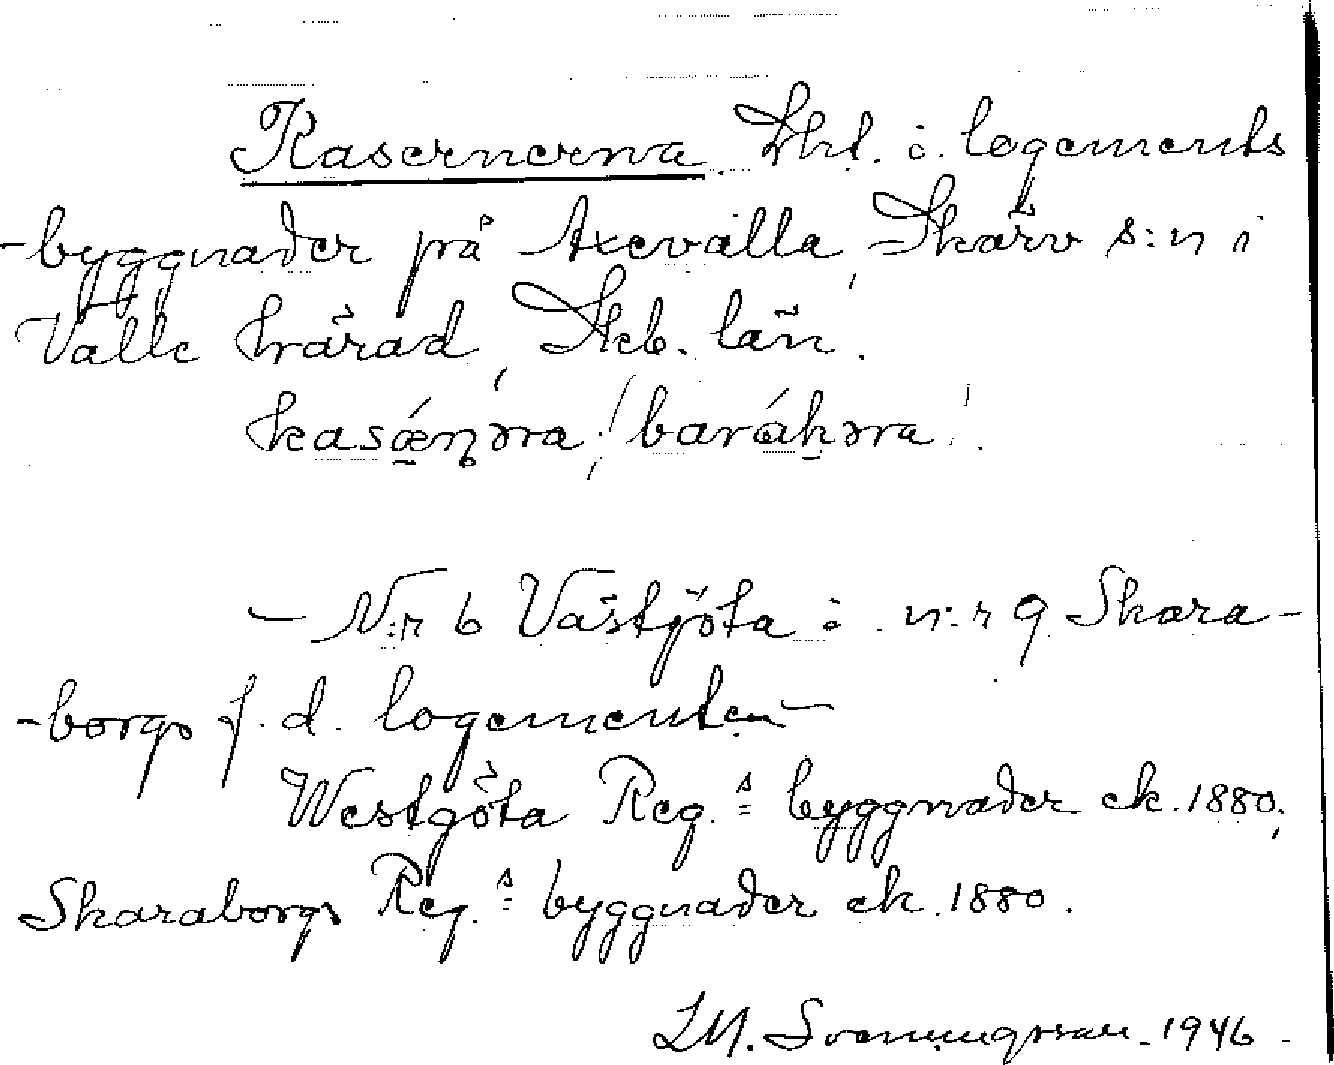 Kasernerna Lht. o. logements
-byggnader på Axevalla, Skärv s:n i
Valle härad, Skb. län.
kasǽṇəra, / barákəra.
- N:r 6 Västgöta o. n:r 9 Skara-
-borgs f.d. logementen -
Westgöta Reg:s byggnader ek. 1880,
Skaraborgs Reg:s byggnader ek. 1880.
LM. Svenungsson. 1946.